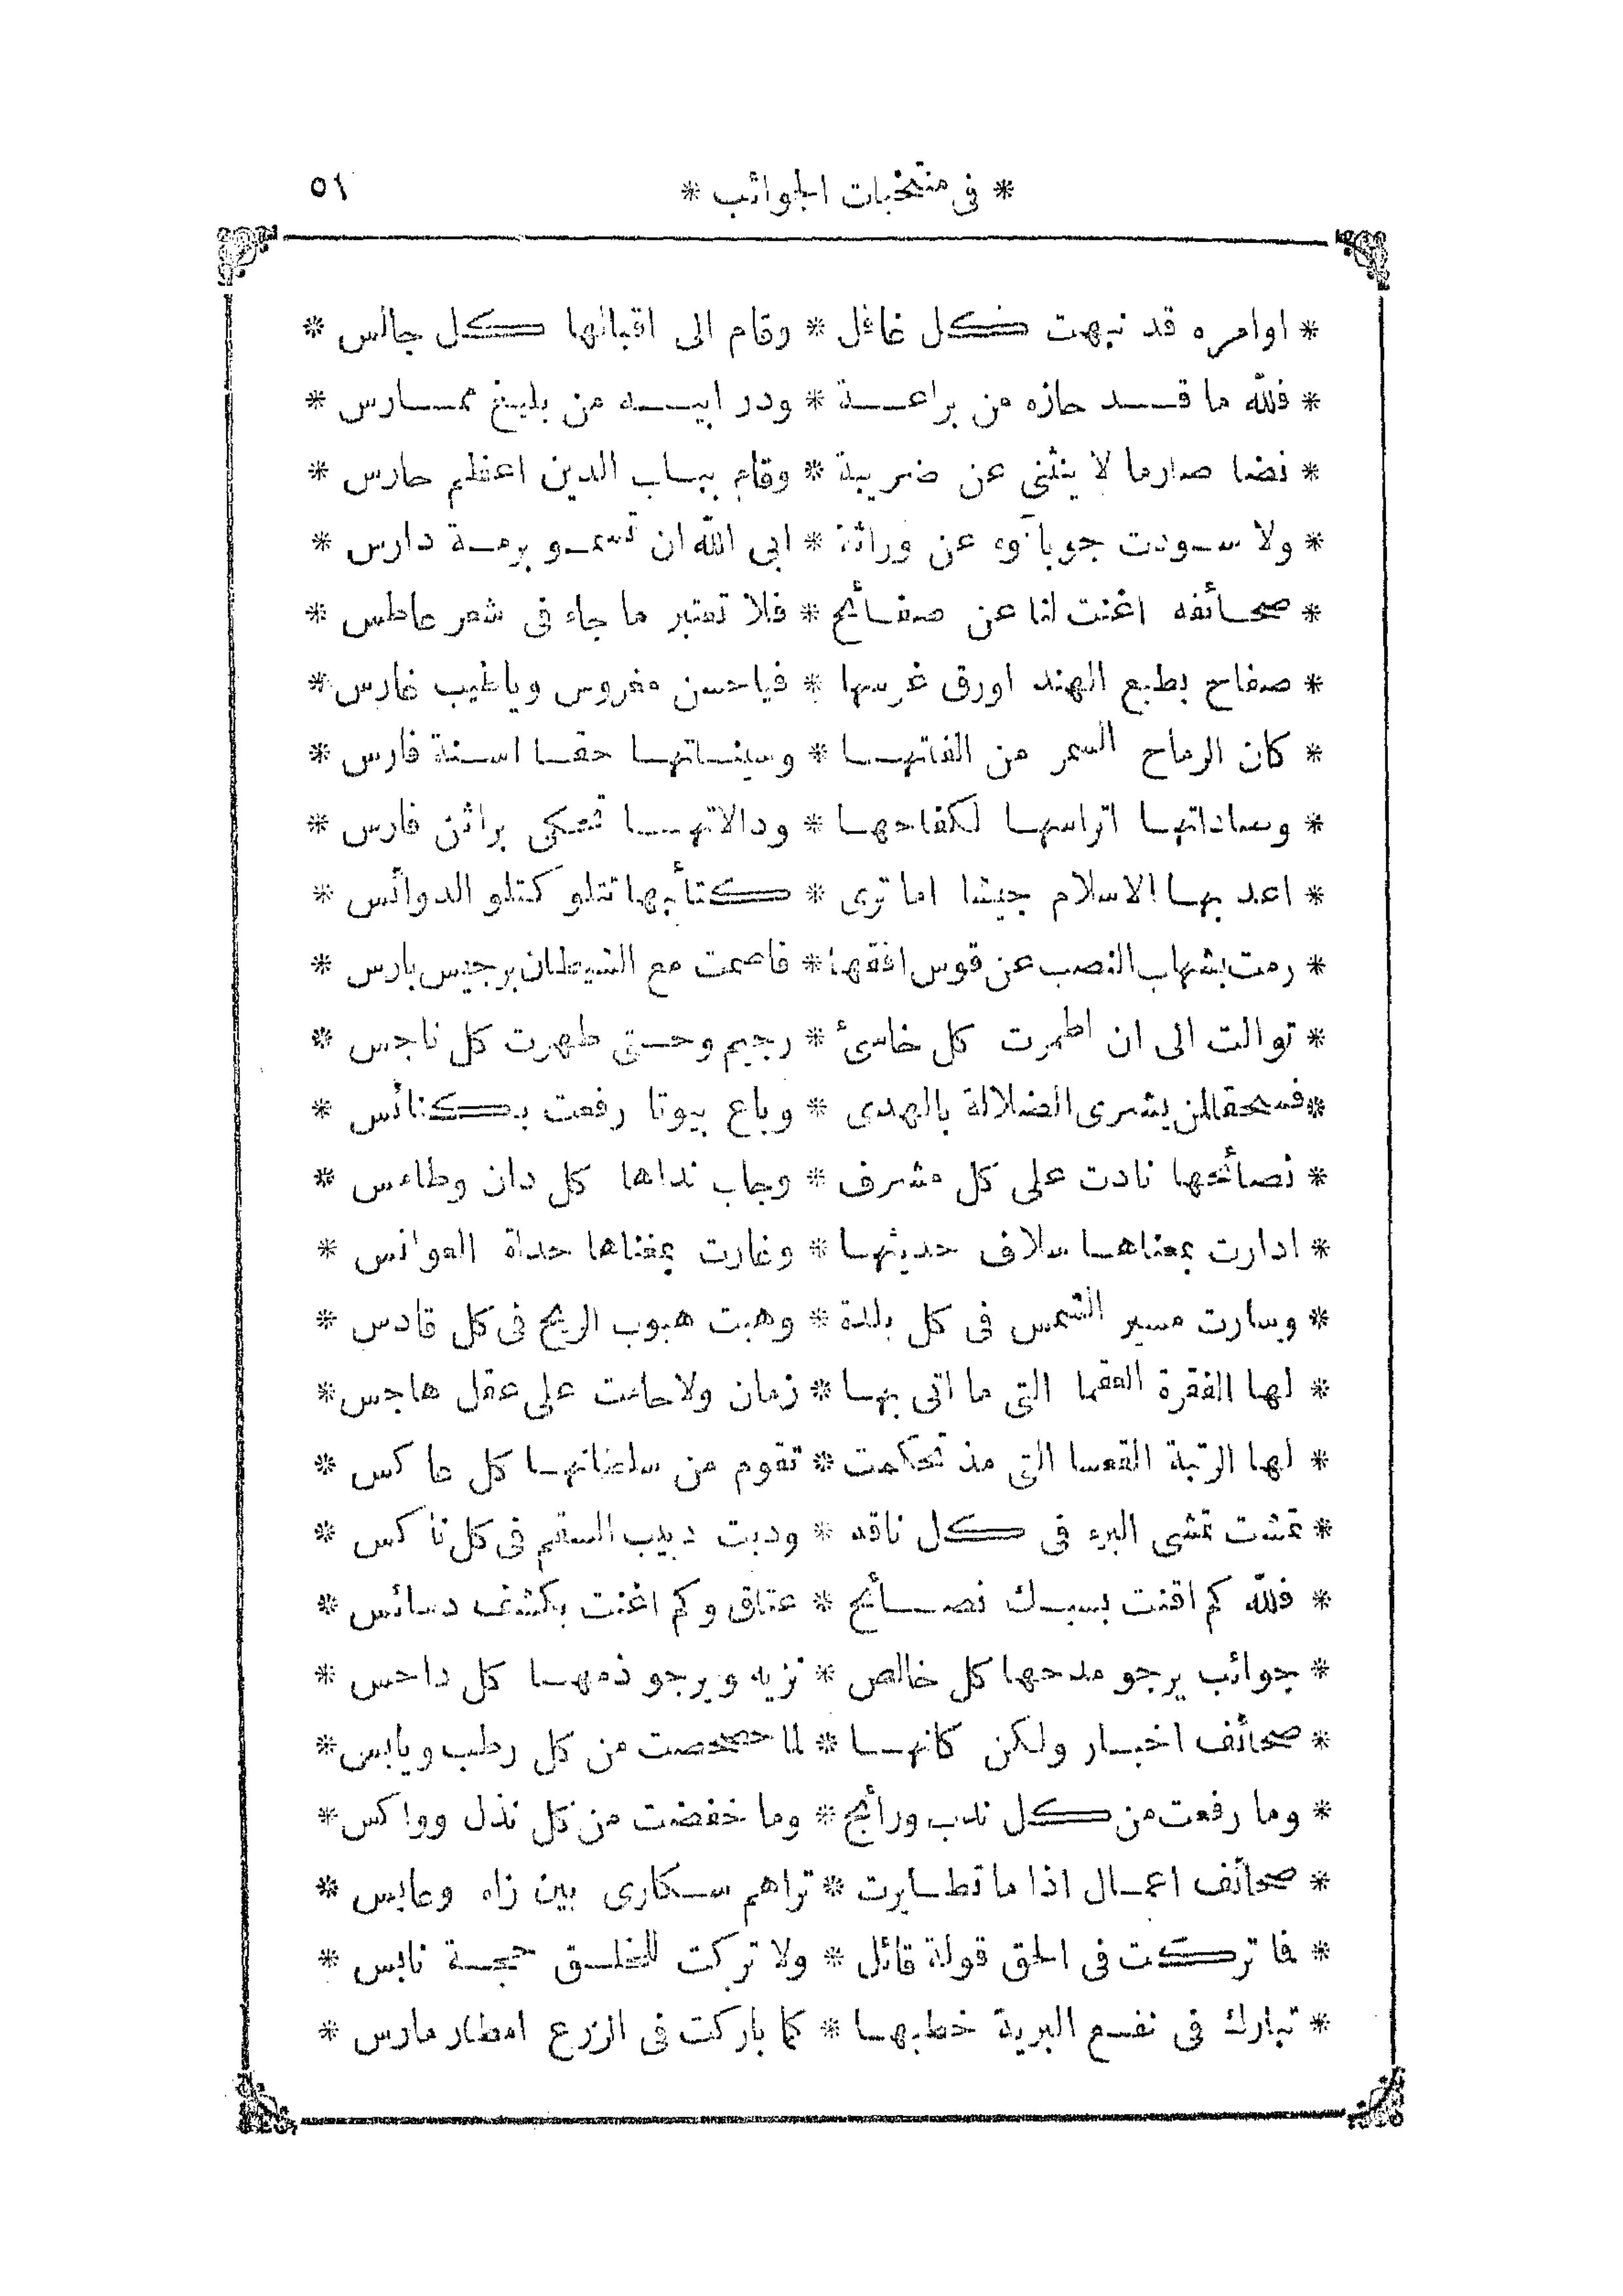 * فى منتخبات الجوائب * ٥١
* اوامره قد نبهت كل غافل * وقام الى اقبالها كل جالس *
* فلله ما قد حازه من براعة * ودر ابيه من بليغ ممارس *
* نضا صارما لا ينثنى عن ضريبة * وقام بباب الدين اعظم حارس *
* ولا سودت جوباؤه عن وراثة * ابى الله ان تسمو برمة دارس *
* صحائفه اغنت لنا عن صفائح * فلا تعتبر ما جاء فى شعر عاطس *
* صفاح بطبع الهند اورق غرسها * فياحسن مغروس وياطيب غارس *
* كان الرماح السمر من الفاتها * وسيناتها حقا اسنة فارس *
* وصاداتها اتراسها لكفاحها * ودالاتها تحكى براثن فارس *
* اعد بها الاسلام جيشا اما ترى * كتأبها تتلو كتلو الدوائس *
* رمت بشهاب النصب عن قوس افقها * فاصمت مع الشيطان برجيس بارس *
* توالت الى ان اطمرت كل خاسئ * رجيم وحتى طهرت كل ناجس *
* فسحقا لمن يشرى الضلالة بالهدى * وباع بيوتا رفعت بكنائس *
* نصائحها نادت على كل مشرف * وجاب نداها كل دان وطامس *
* ادارت بمعناها سلاف حديثها * وغارت بمغناها حداة العوانس *
* وسارت مسير الشمس فى كل بلدة * وهبت هبوب الريح فى كل قادس *
* لها الفقرة الفقما التى ما اتى بها * زمان ولا حامت على عقل هاجس *
* لها الرتبة القعسا التى مذ تحكمت * تقوم من سلطانها كل عاكس *
* تمشت تمشى البرء فى كل ناقه * ودبت دبيب السقم فى كل ناكس *
* فلله كم اقنت بسبك نصائح * عتاق وكم اغنت بكشف دسائس *
* جوائب يرجو مدحها كل خالص * نزيه ويرجو ذمها كل داحس *
* صحائف اخبار ولكن كانها * لما حصحصت من كل رطب ويابس *
* وما رفعت من كل ندب ورائج * وما خفضت من كل نذل وواكس *
* صحائف اعمال اذا ما تطايرت * تراهم سكارى بين زاه وعابس *
* فا تركت فى الحق قولة قائل * ولا تركت للخلق حجة نابس *
* تبارك فى نفع البرية خطبها * كما باركت فى الزرع امطار مارس *